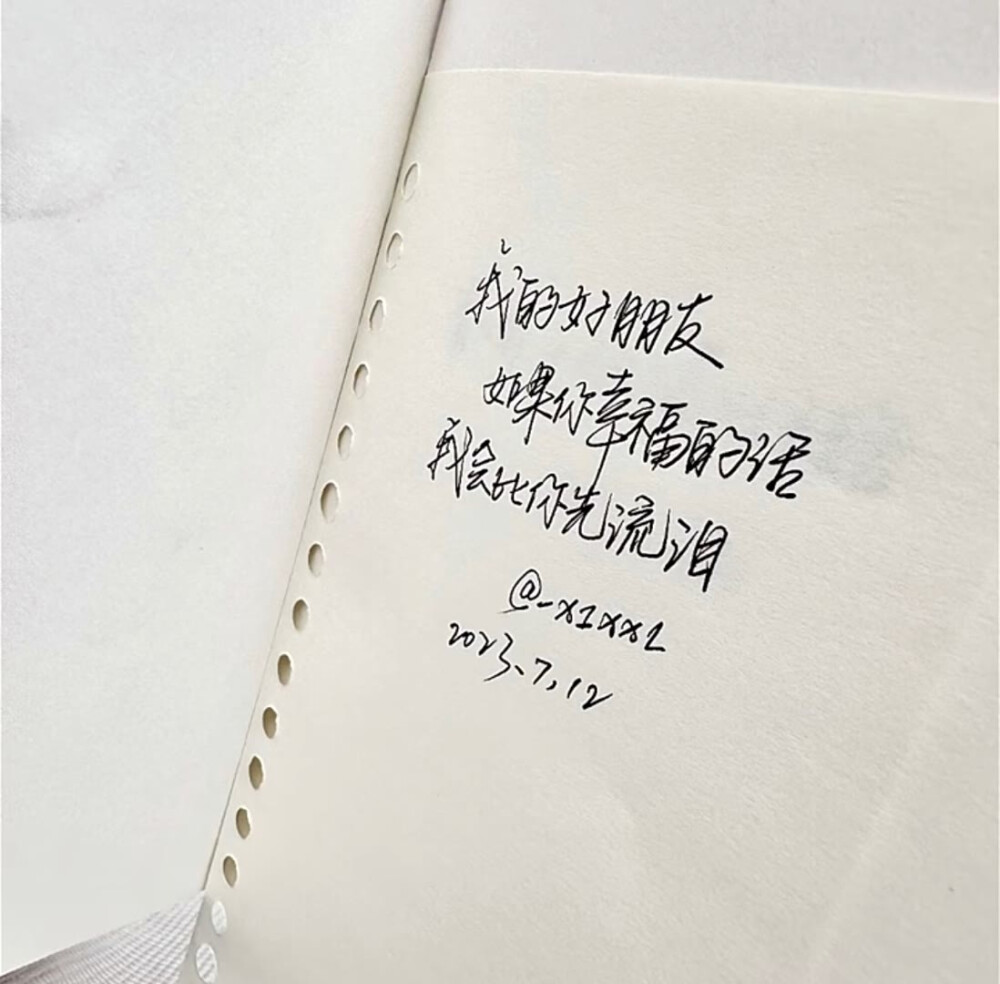 我的好朋友
如果你幸福的话
我会比你先流泪
@-x1xx1
2023.7.12